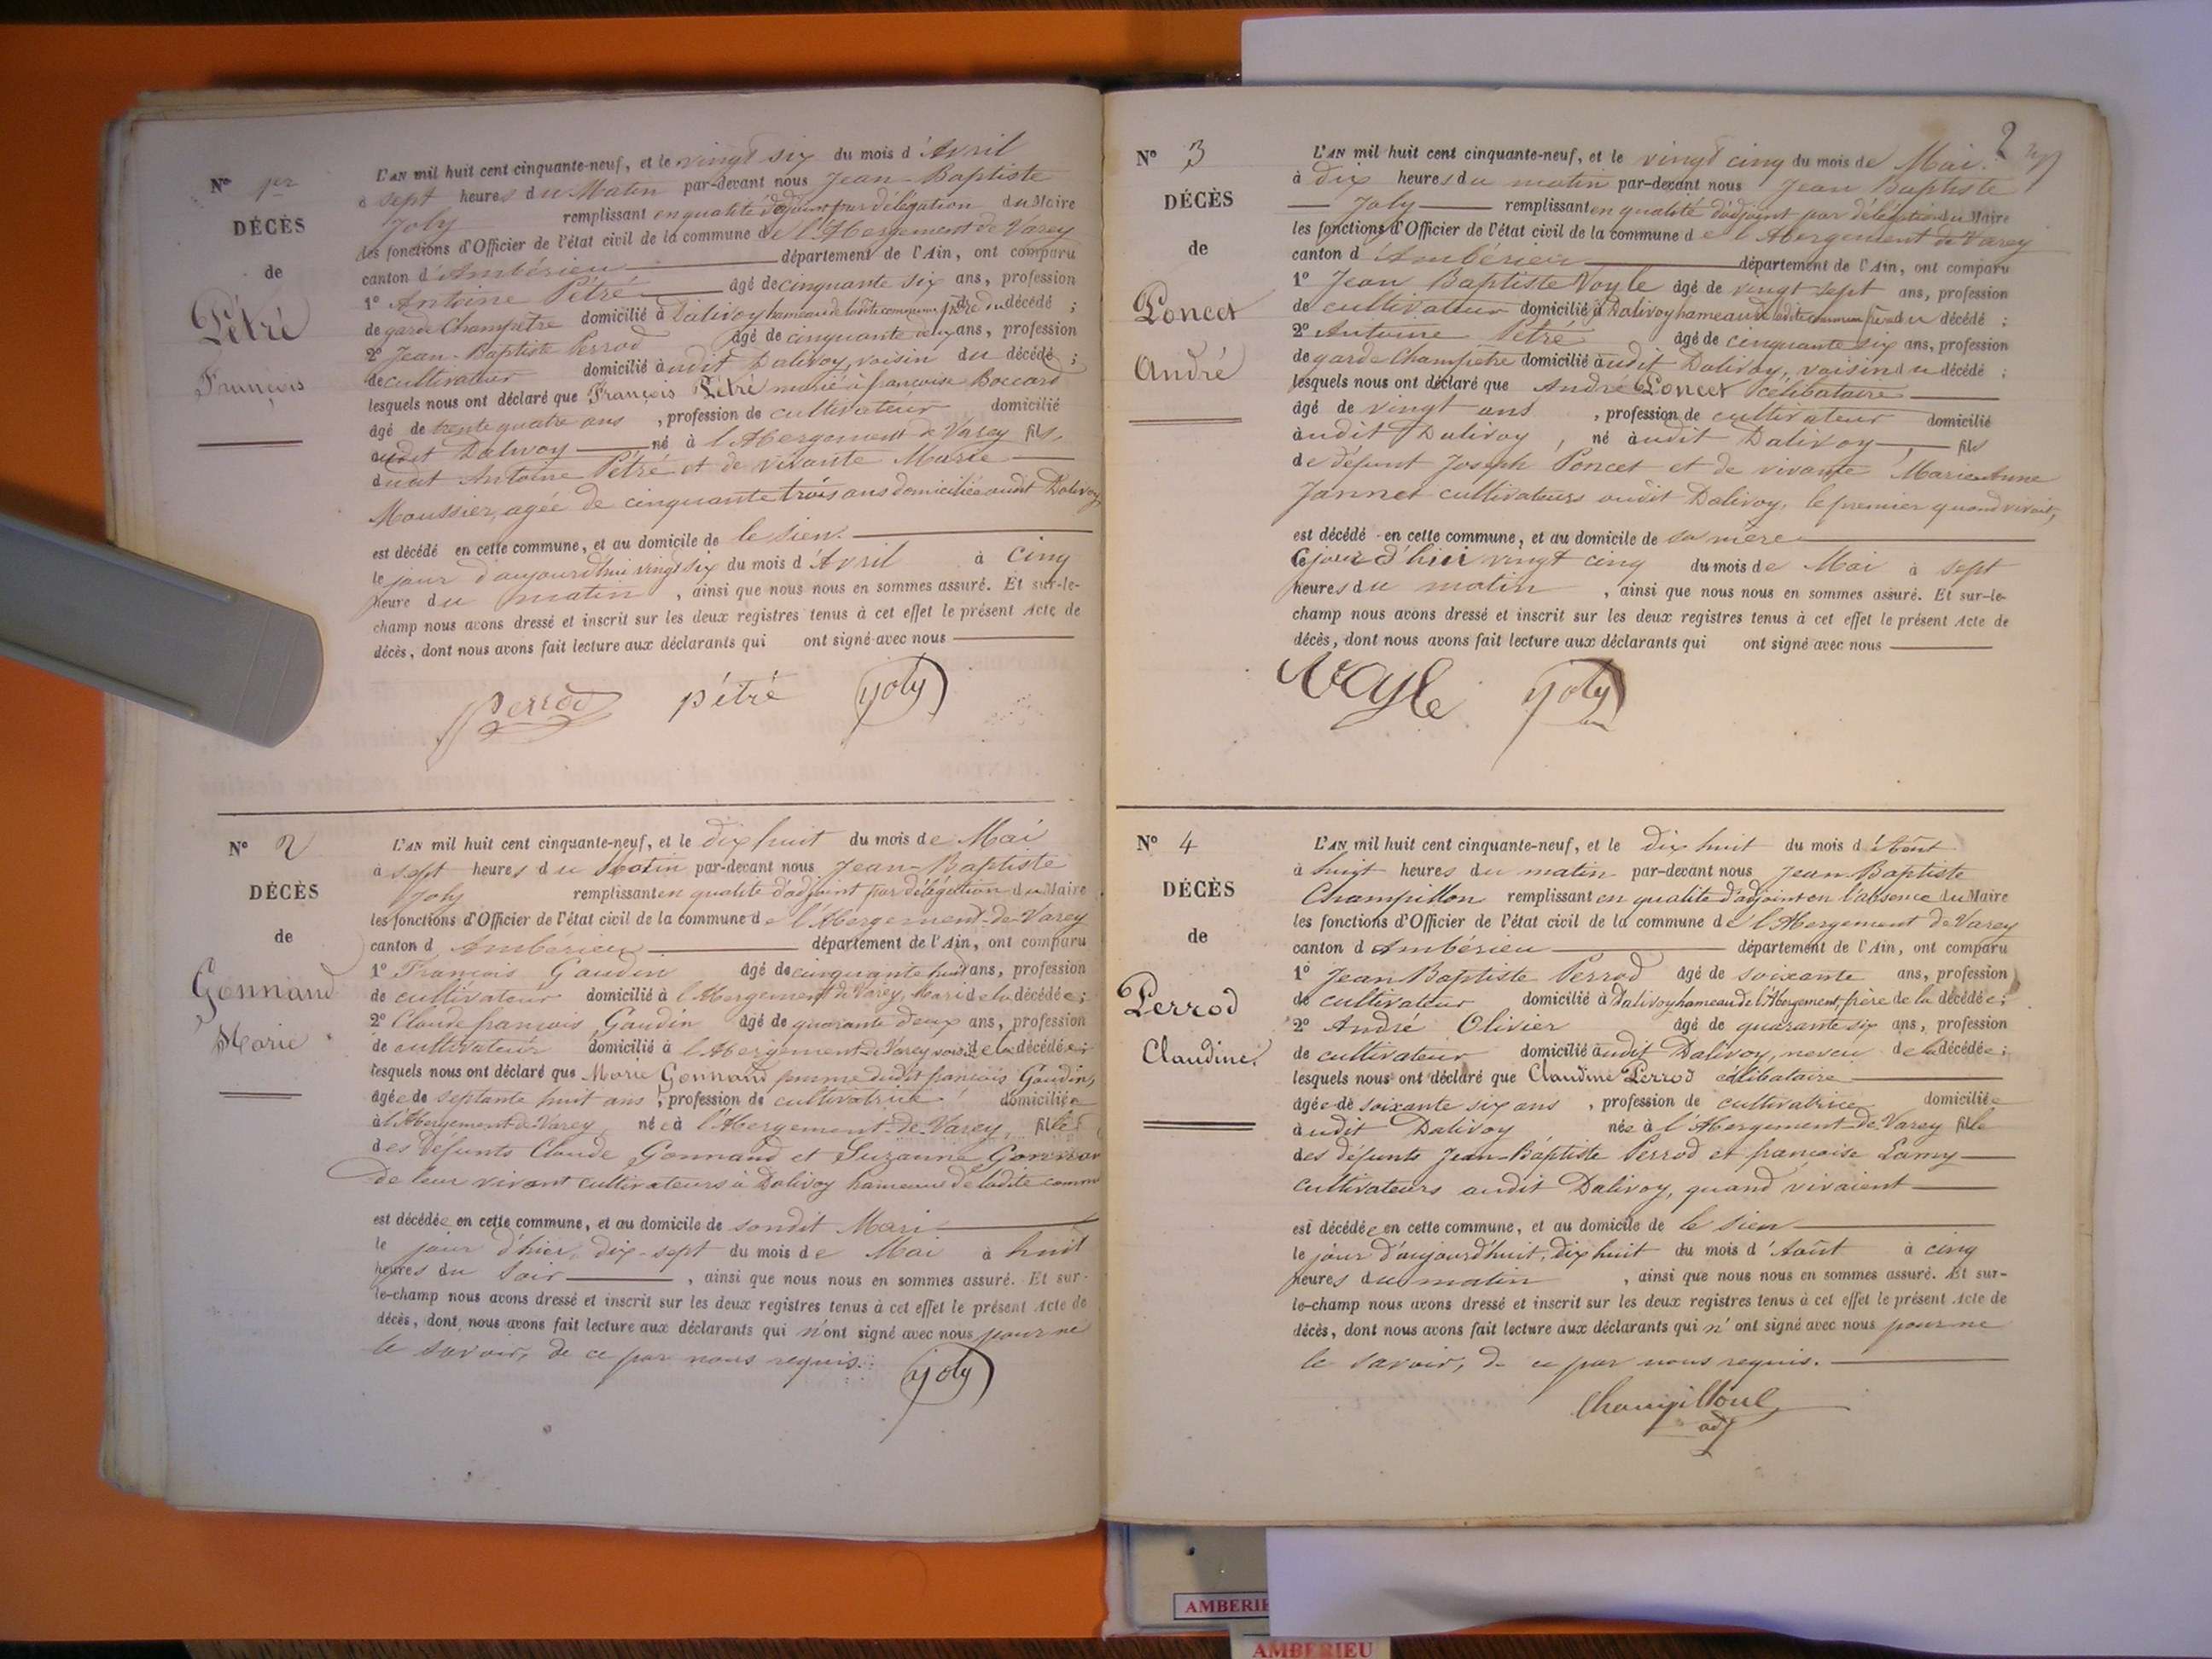 N° 1er
DÉCÈS
de
Pétré
François
L'AN mil huit cent cinquante-neuf, et le vingt six du mois d'Avril
à sept heures du Matin par-devant nous Jean-Baptiste
Joly remplissant en qualité d'adjoint par délégation du Maire
les fonctions d'Officier de l'état civil de la commune de l'Abergement de Varey
canton d'Ambérieu département de l'Ain, ont comparu
1° Antoine Pétré âgé de cinquante six ans, profession
de garde Champêtre domicilié à Dalivoy hameau de ladite commune, père du décédé ;
2° Jean-Baptiste Perrod âgé de cinquante ans, profession
de cultivateur domicilié audit Dalivoy, voisin du décédé ;
lesquels nous ont déclaré que François Pétré marié à françoise Boccard
âgé de trente quatre ans, profession de cultivateur domicilié
audit Dalivoy né à l'Abergement de Varey fils
dudit Antoine Pétré et de vivante Marie
Moussier, agée de cinquante trois ans domiciliée audit Dalivoy
est décédé en cette commune, et au domicile de le sien.
le jour d'aujourd'hui vingt six du mois d'Avril à cinq
heure du matin, ainsi que nous nous en sommes assuré. Et sur-le-
champ nous avons dressé et inscrit sur les deux registres tenus à cet effet le présent Acte de
décès, dont nous avons fait lecture aux déclarants qui ont signé avec nous
Perrod pétré joly
N° 2
DÉCÈS
de
Gonnand
Marie
L'AN mil huit cent cinquante-neuf, et le dix huit du mois de Mai
à sept heures du Matin par-devant nous Jean-Baptiste
Joly remplissant en qualité d'adjoint par délégation du Maire
les fonctions d'Officier de l'état civil de la commune de l'Abergement-de-Varey
canton d Ambérieu département de l'Ain, ont comparu
1° François Gaudin âgé de cinquante huit ans, profession
de cultivateur domicilié à l'Abergement de Varey, Mari de la décédée ;
2° Claude françois Gaudin âgé de quarante deux ans, profession
de cultivateur domicilié à l'Abergement de Varey voisin de la décédée ;
lesquels nous ont déclaré que Marie Gonnand femme dudit françois Gaudin,
âgée de septante huit ans, profession de cultivatrice domiciliée
à l'Abergement de Varey, née à l'Abergement-de-Varey, fille
des défunts Claude Gonnand et Suzanne
de leur vivant cultivateurs à Dalivoy hameau de ladite comm
est décédée en cette commune, et au domicile de sondit Mari
le jour d'hier, dix-sept du mois de Mai à huit
heures du Soir, ainsi que nous nous en sommes assuré. Et sur-
le-champ nous avons dressé et inscrit sur les deux registres tenus à cet effet le présent Acte de
décès, dont nous avons fait lecture aux déclarants qui n'ont signé avec nous pour ne
le savoir, de ce par nous requis.
joly
2
N° 3
DÉCÈS
de
Poncet
André
L'AN mil huit cent cinquante-neuf, et le vingt cinq du mois de Mai
à dix heures du matin par-devant nous Jean Baptiste
Joly remplissant en qualité d'adjoint par délégation du Maire
les fonctions d'Officier de l'état civil de la commune de l'Abergement de Varey
canton d'Ambérieu département de l'Ain, ont comparu
1° Jean Baptiste Voyle âgé de vingt sept ans, profession
de cultivateur domicilié à Dalivoy hameau de ladite commune, du décédé ;
2° Antoine Pétré âgé de cinquante six ans, profession
de garde Champêtre domicilié audit Dalivoy, voisin du décédé ;
lesquels nous ont déclaré que André Poncet célibataire
âgé de vingt ans, profession de cultivateur domicilié
audit Dalivoy, né audit Dalivoy fils
de défunt Joseph Poncet et de vivante Marie Anne
Jannet cultivateurs audit Dalivoy, le premier quand vivait,
est décédé en cette commune, et au domicile de sa mère
le jour d'hui vingt cinq du mois de Mai à sept
heures du matin, ainsi que nous nous en sommes assuré. Et sur-le-
champ nous avons dressé et inscrit sur les deux registres tenus à cet effet le présent Acte de
décès, dont nous avons fait lecture aux déclarants qui ont signé avec nous
Voyle joly
N° 4
DÉCÈS
de
Perrod
Claudine.
L'AN mil huit cent cinquante-neuf, et le dix huit du mois d'Août
à huit heures du matin par-devant nous Jean-Baptiste
Champillon remplissant en qualité d'adjoint en l'absence du Maire
les fonctions d'Officier de l'état civil de la commune de l'Abergement de Varey
canton d Ambérieu département de l'Ain, ont comparu
1° Jean Baptiste Perrod âgé de soixante ans, profession
de cultivateur domicilié à Dalivoy hameau de l'Abergement, frère de la décédée ;
2° André Olivier âgé de quarante six ans, profession
de cultivateur domicilié audit Dalivoy, neveu de la décédée ;
lesquels nous ont déclaré que Claudine Perrod célibataire
âgée de soixante six ans, profession de cultivatrice domiciliée
audit Dalivoy née à l'Abergement-de-Varey fille
des défunts Jean-Baptiste Perrod et françoise Lamy
cultivateurs audit Dalivoy, quand vivaient
est décédée en cette commune, et au domicile de le sien
le jour d'aujourd'huit, dix huit du mois d'Août à cinq
heures du matin, ainsi que nous nous en sommes assuré. Et sur-
le-champ nous avons dressé et inscrit sur les deux registres tenus à cet effet le présent Acte de
décès, dont nous avons fait lecture aux déclarants qui n'ont signé avec nous pour ne
le savoir, de ce par nous requis.
Champilloul
adj
AMBERIE
AMBERIEU